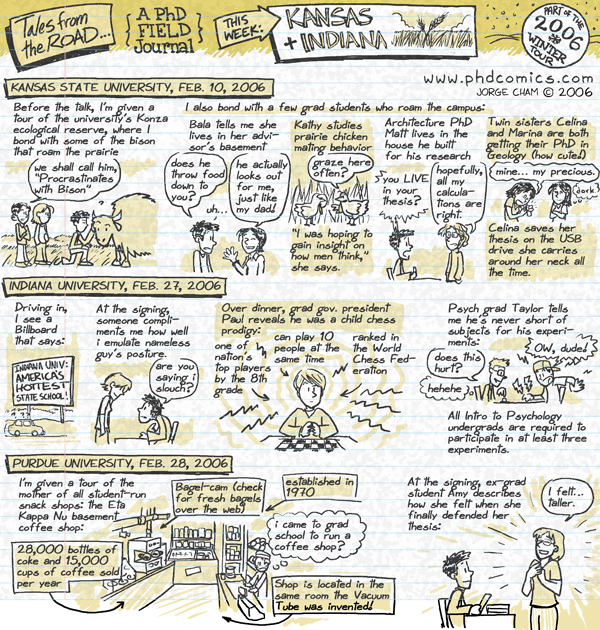 Tales from
the ROAD...
A PhD
FIELD
Journal
THIS
WEEK:
KANSAS
+ INDIANA
PART OF THE
2006
WINTER
TOUR
www.phdcomics.com
JORGE CHAM © 2006
KANSAS STATE UNIVERSITY, FEB. 10, 2006
Before the talk, I'm given a
tour of the university's Konza
ecological reserve, where I
bond with some of the bison
that roam the prairie
we shall call him,
"Procrastinates
with Bison"
I also bond with a few grad students who roam the campus:
Bala tells me she
lives in her advi-
sor's basement
does he
throw food
down to
you?
uh...
he actually
looks out
for me,
just like
my dad!
Kathy studies
prairie chicken
mating behavior
graze here
often?
"I was hoping to
gain insight on
how men think,"
she says.
Architecture PhD
Matt lives in the
house he built
for his research
you LIVE
in your
thesis?
hopefully,
all my
calcula-
tions are
right.
Twin sisters Celina
and Marina are both
getting their PhD in
Geology (how cute!)
mine... my precious.
dork!
Celina saves her
thesis on the USB
drive she carries
around her neck all
the time.
INDIANA UNIVERSITY, FEB. 27, 2006
Driving in,
I see a
Billboard
that says:
INDIANA UNIV:
AMERICA'S
HOTTEST
STATE SCHOOL!
At the signing,
someone compli-
ments me how well
i emulate nameless
guy's posture.
are you
saying i
slouch?
Over dinner, grad gov. president
Paul reveals he was a child chess
prodigy:
one of
nation's
top players
by the 8th
grade
can play 10
people at the
same time
ranked in
the World
Chess Fed-
eration
Psych grad Taylor tells
me he's never short of
subjects for his experi-
ments:
does this
hurt?
hehehe
OW, dude!
All Intro to Psychology
undergrads are required to
participate in at least three
experiments.
PURDUE UNIVERSITY, FEB. 28, 2006
I'm given a tour of the
mother of all student-run
snack shops: the Eta
Kappa Nu basement
coffee shop:
28,000 bottles of
coke and 15,000
cups of coffee sold
per year
Bagel-cam (check
for fresh bagels
over the web)
established in
1970
i came to grad
school to run a
coffee shop?
Shop is located in the
same room the Vacuum
Tube was invented!
At the signing, ex-grad
student Amy describes
how she felt when she
finally defended her
thesis:
I felt...
taller.